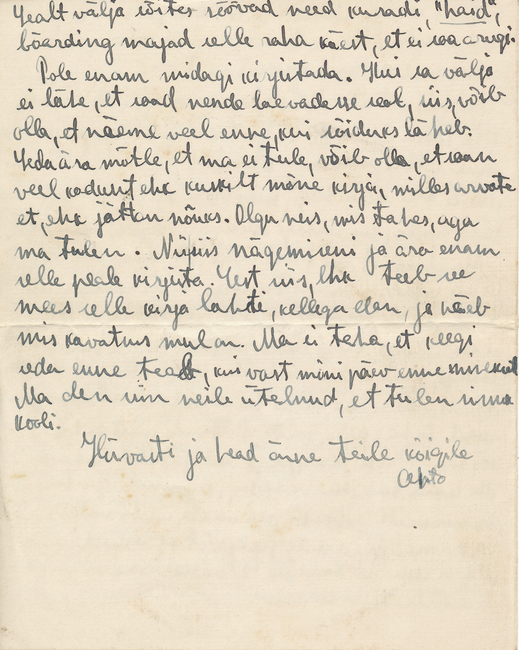 Sealt välja sõites röövad need kuradi, "haid",
boarding majad selle raha käest, et ei saa arugi.
Pole enam midagi kirjutada. Kui sa välja
ei lähe, et saad nende laevadesse seal, siis, võib
olla, et näeme veel enne, kui sõiduks läheb.
Seda ära mõtle, et ma ei tule, võib olla, et saan
veel kodunt ehk kuskilt mõne kirja, milles arvate
et, ehk jättan nõuks. Olgu neis, mis tahes, aga
ma tulen. Nüüis nägemiseni ja ära enam
selle peale kirjuta. Sest siis, ehk teeb see
mees selle kirja lahti, kellega elan, ja näeb
mis kavatsus mul on. Ma ei taha, et keegi
seda enne teab, kui vast mõni päev enne minekut
Ma olen siin neile ütelnud, et tulen sinna
kooli.
Hüvasti ja head õnne teile kõigile
Ahto